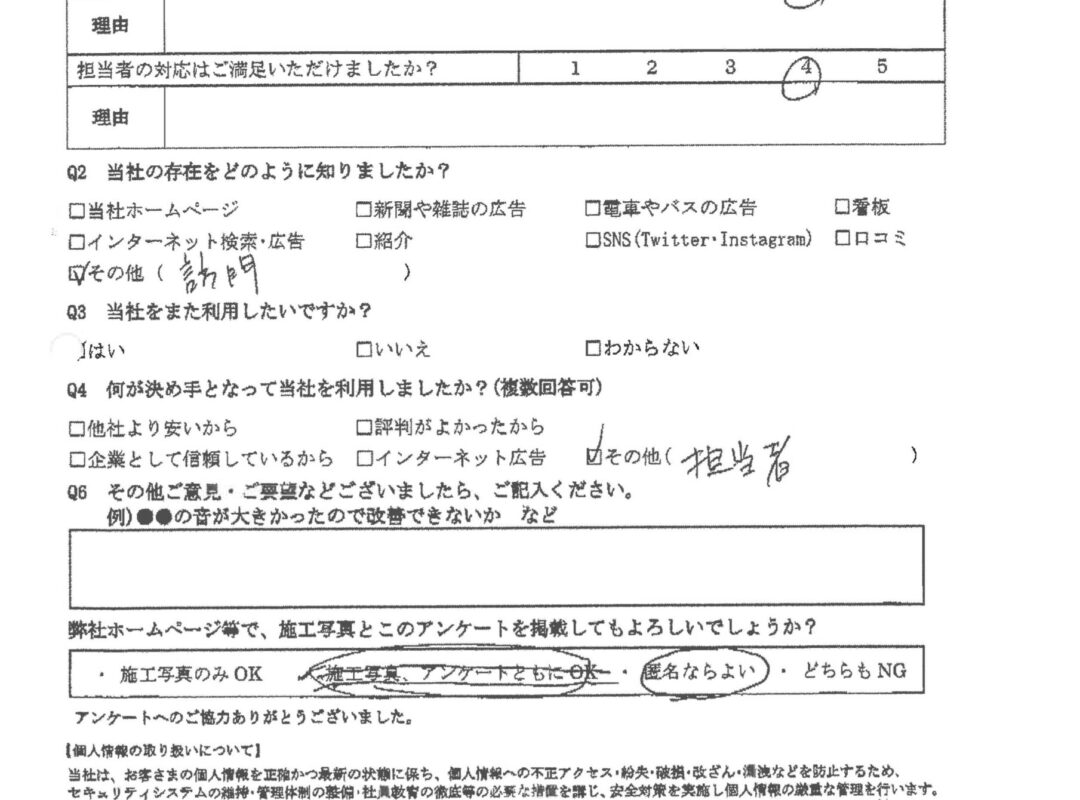 理由
担当者の対応はご満足いただけましたか？ 1 2 3 4 5
理由
Q2 当社の存在をどのように知りましたか？
□当社ホームページ □新聞や雑誌の広告 □電車やバスの広告 □看板
□インターネット検索･広告 □紹介 □SNS(Twitter･Instagram) □口コミ
☑その他 ( 訪問 )
Q3 当社をまた利用したいですか？
はい □いいえ □わからない
Q4 何が決め手となって当社を利用しましたか？(複数回答可)
□他社より安いから □評判がよかったから
□企業として信頼しているから □インターネット広告 ☑その他( 担当者 )
Q6 その他ご意見・ご要望などございましたら、ご記入ください。
例)●●の音が大きかったので改善できないか など
弊社ホームページ等で、施工写真とこのアンケートを掲載してもよろしいでしょうか？
・ 施工写真のみ OK ・施工写真、アンケートともに OK ・ 匿名ならよい ・ どちらも NG
アンケートへのご協力ありがとうございました。
【個人情報の取り扱いについて】
当社は、お客さまの個人情報を正確かつ最新の状態に保ち、個人情報への不正アクセス･紛失･破損･改ざん･漏洩などを防止するため、
セキュリティシステムの維持･管理体制の整備･社員教育の徹底等の必要な措置を講じ、安全対策を実施し個人情報の厳重な管理を行います。